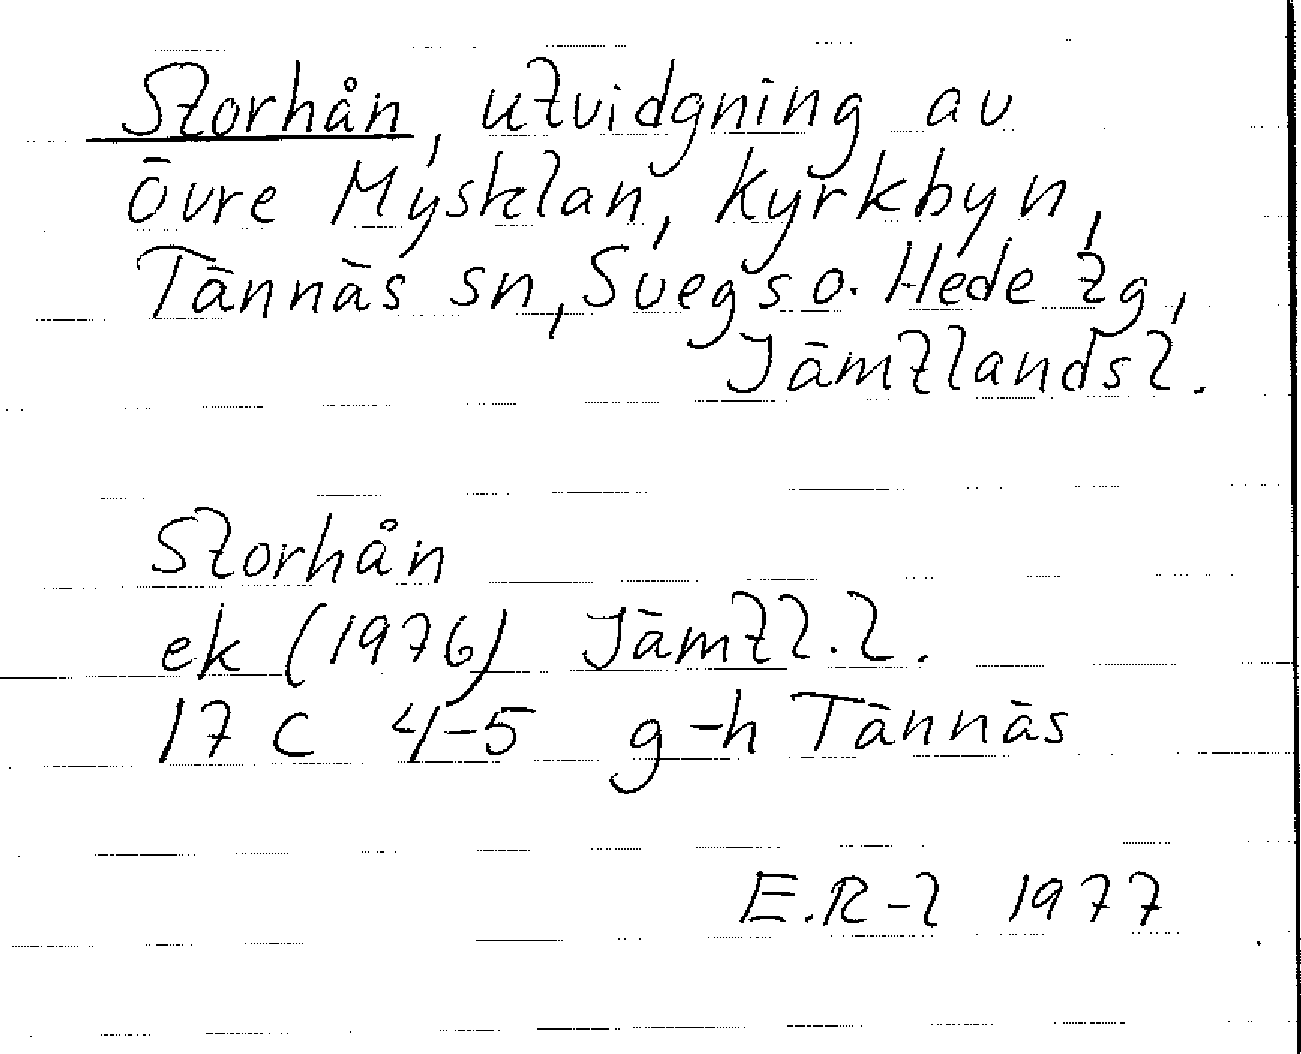 Storhån, utvidgning av
Övre Mysklan, Kyrkbyn,
Tännäs sn, Svegs o. Hede tg,
Jämtlands l.
Storhån
ek (1976) Jämtl. l.
17 C 4-5 g-h Tännäs
E.R-l 1977